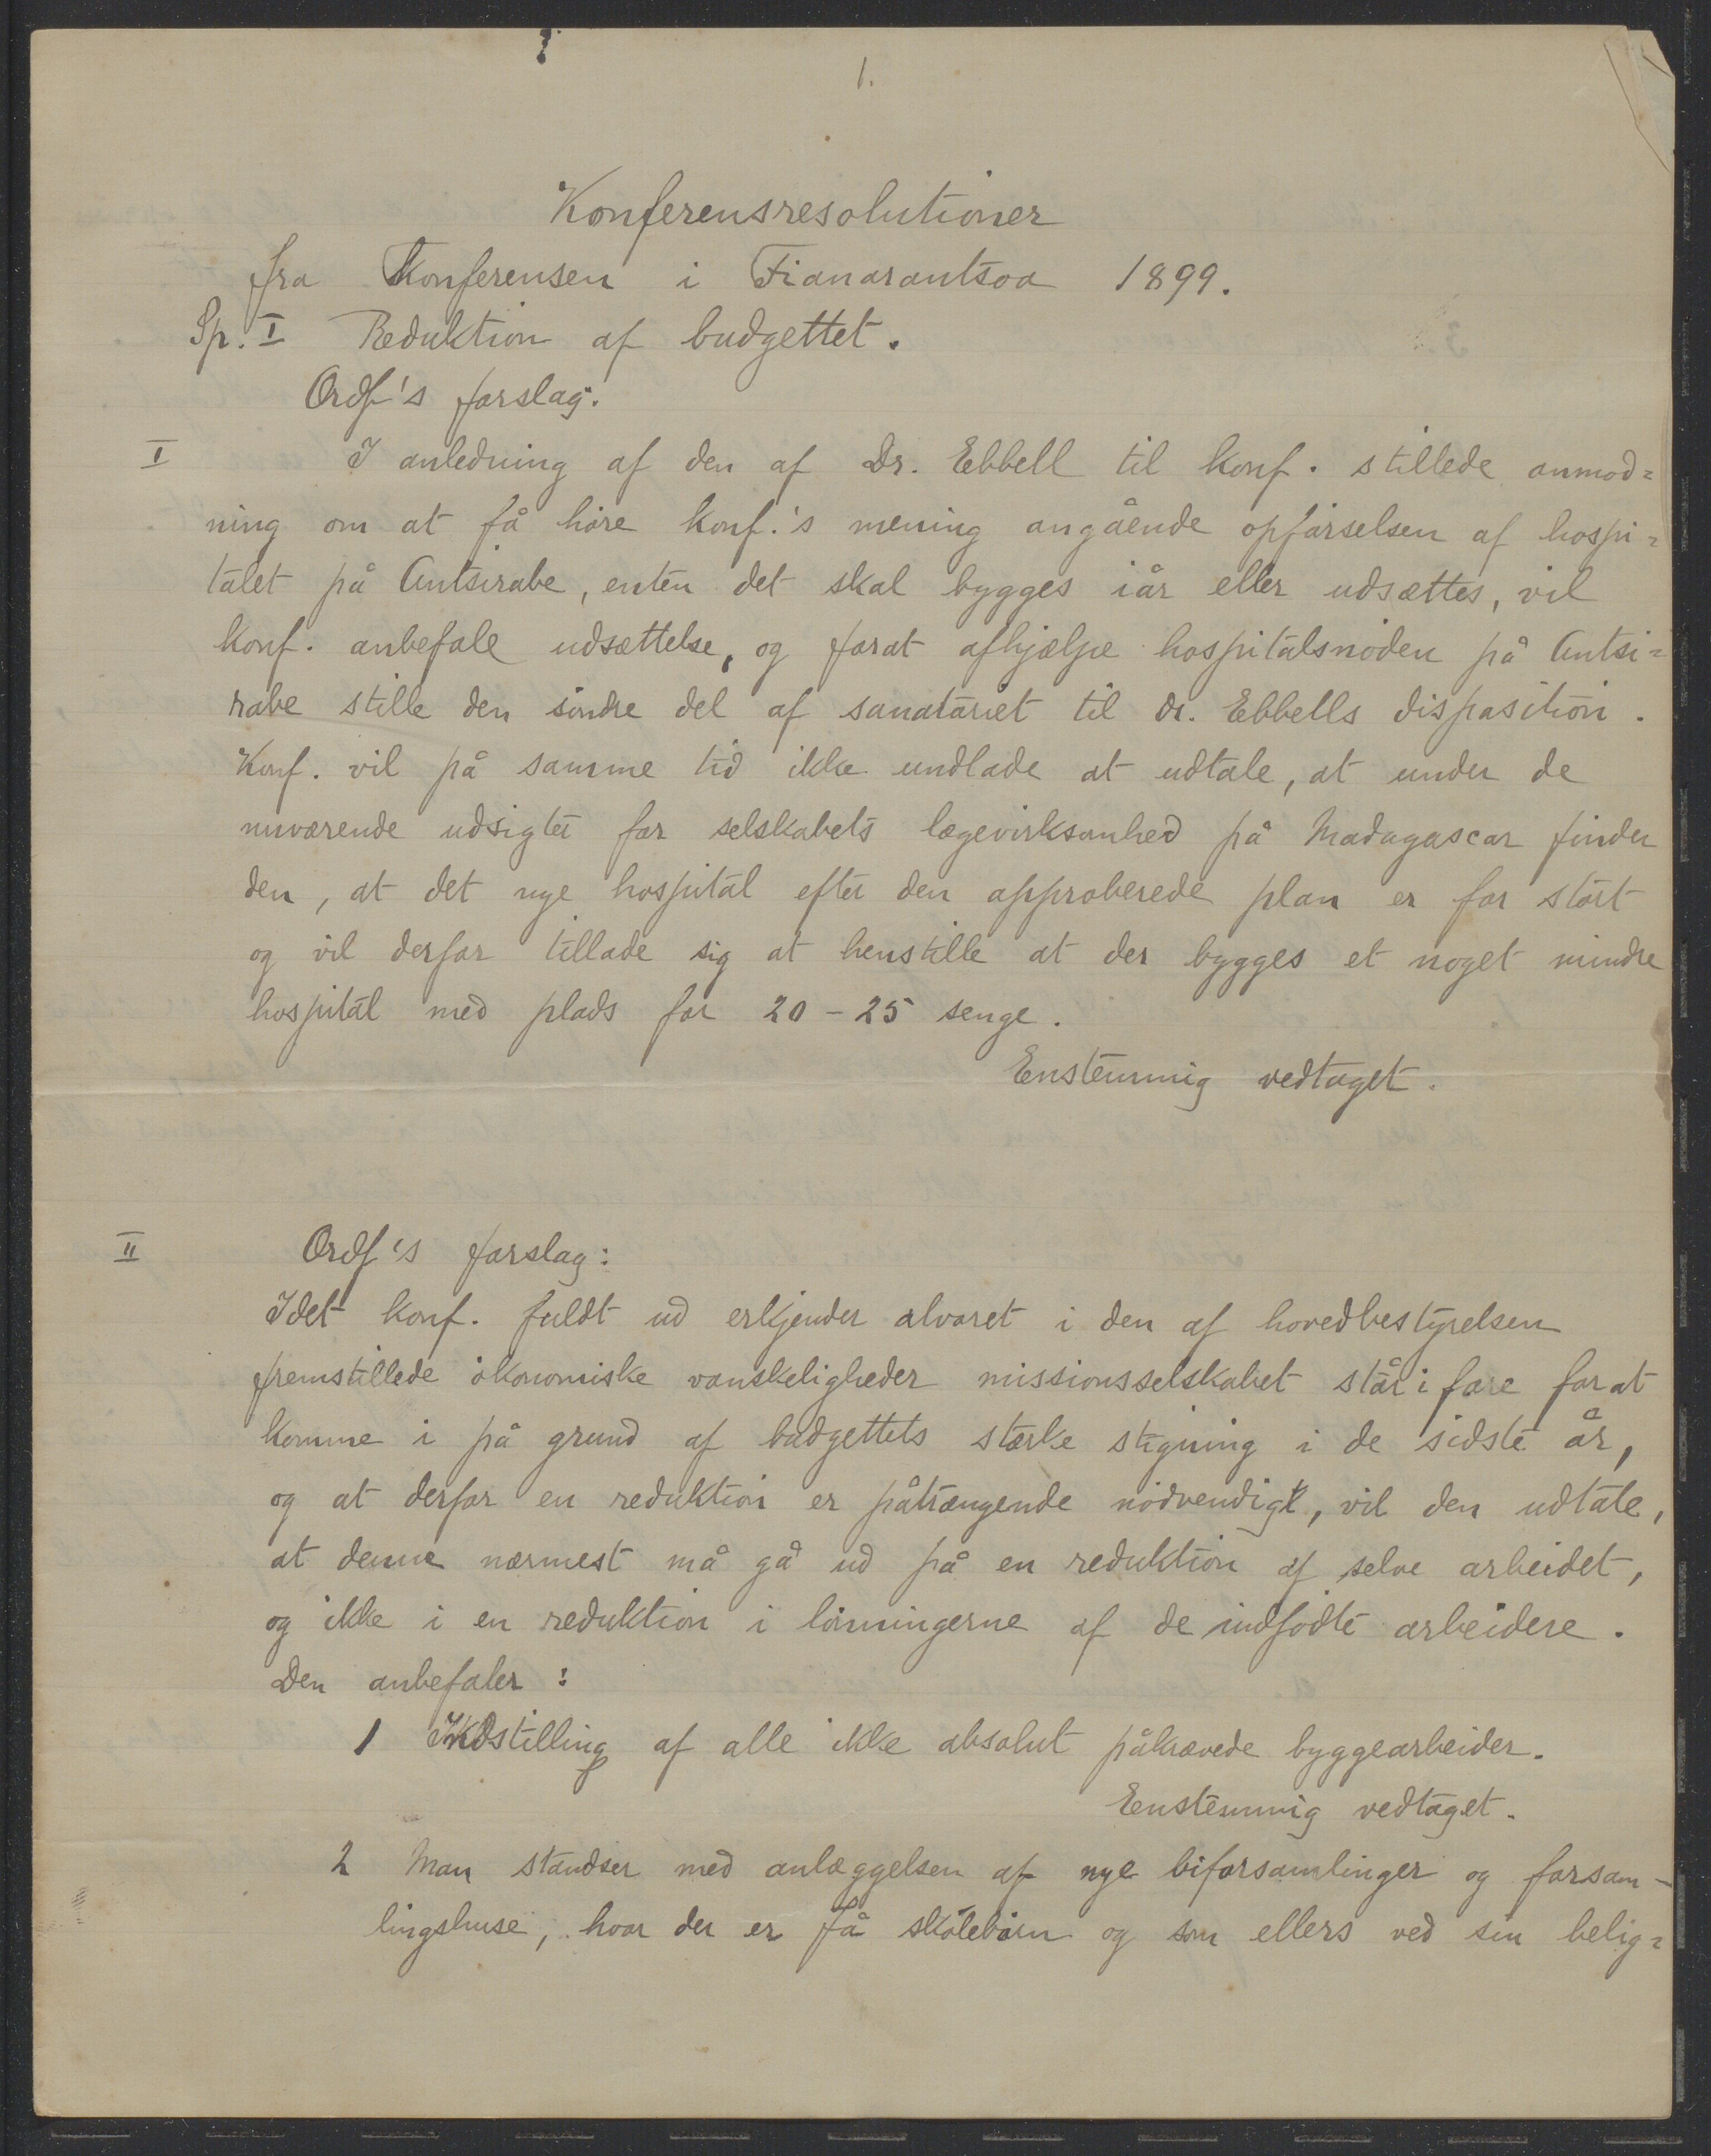 1.
Konferensresolutioner
fra Konferensen i Fianarantsoa 1899.
Sp. I Reduktion af budgettet.
Ordf's forslag:
I I anledning af den af Dr. Ebbell til konf. stillede anmod=
ning om at få høre konf.'s mening angående opførselsen af hospi=
talet på Antsirabe, enten det skal bygges iår eller udsættes, vil
konf. anbefale udsættelse, og forat afhjælpe hospitalsnøden på Antsi=
rabe stille den søndre del af sanatoriet til dr. Ebbells disposition.
Konf. vil på samme tid ikke undlade at udtale, at under de
nuværende udsigter for selskabets lægevirksomhed på Madagascar finder
den, at det nye hospital efter den approberede plan er for stort
og vil derfor tillade sig at henstille at der bygges et noget mindre
hospital med plads for 20-25 senge.
Enstemmig vedtaget.
II Ordf's forslag:
Idet konf. fuldt ud erkjender alvoret i den af hovedbestyrelsen
fremstillede økonomiske vanskeligheder missionsselskabet står i fare for at
komme i på grund af budgettets stærke stigning i de sidste år,
og at derfor en reduktion er påtrængende nødvendigt, vil den udtale,
at denne nærmest må gå ud på en reduktion af selve arbeidet,
og ikke i en reduktion i lønningerne af de indfødte arbeidere.
Den anbefaler:
1 Indstilling af alle ikke absolut påkrævede byggearbeider.
Enstemmig vedtaget.
2 Man standser med anlæggelsen af nye biforsamlinger og forsam-
lingshuse, hvor der er få skolebørn og som ellers ved sin belig=